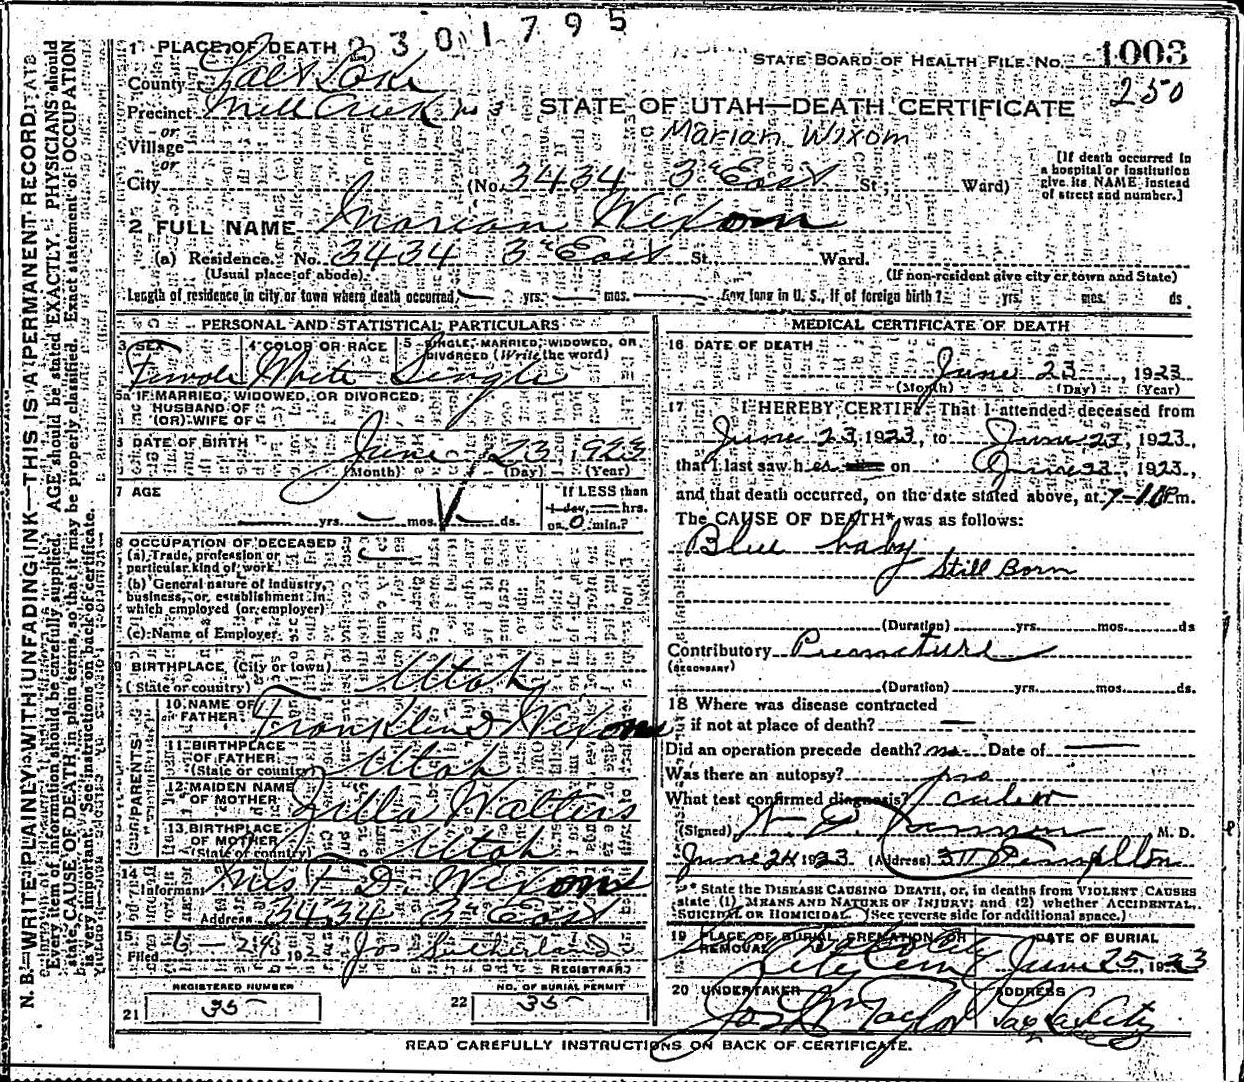 2301795
1 PLACE OF DEATH
STATE BOARD OF HEALTH FILE No. 1003
County Salt Lake
250
Precinct Mill Creek No 3
STATE OF UTAH—DEATH CERTIFICATE
or
Village
Marian Wixom
or
City (No. 3434 3rd East St.; Ward)
[If death occurred in a hospital or institution give its NAME instead of street and number.]
2 FULL NAME Marian Wixom
(a) Residence. No. 3434 3rd East St. Ward.
(Usual place of abode) (If non-resident give city or town and State)
Length of residence in city or town where death occurred, yrs. mos. How long in U. S., if of foreign birth? yrs. mos. ds.
PERSONAL AND STATISTICAL PARTICULARS
3 SEX 4 COLOR OR RACE 5 SINGLE, MARRIED, WIDOWED, OR DIVORCED (Write the word)
Female White Single
5a IF MARRIED, WIDOWED, OR DIVORCED
HUSBAND OF
(OR) WIFE OF
6 DATE OF BIRTH June 23 1923
(Month) (Day) (Year)
7 AGE If LESS than
yrs. mos. ds. 1 day, hrs.
or 0 min.?
8 OCCUPATION OF DECEASED
(a) Trade, profession or particular kind of work
(b) General nature of industry, business, or establishment in which employed (or employer)
(c) Name of Employer
9 BIRTHPLACE (City or town)
(State or country) Utah
PARENTS
10 NAME OF FATHER Franklin D Wixom
11 BIRTHPLACE OF FATHER (State or country) Utah
12 MAIDEN NAME OF MOTHER Zilla Walters
13 BIRTHPLACE OF MOTHER (State or country) Utah
14 Informant Mrs F. D. Wixom
Address 3434 3rd East
15 Filed 6-24 192 Jos Sutherland
REGISTRAR
REGISTERED NUMBER NO. OF BURIAL PERMIT
21 35 22 35
MEDICAL CERTIFICATE OF DEATH
16 DATE OF DEATH
June 23, 1923
(Month) (Day) (Year)
17 I HEREBY CERTIFY, That I attended deceased from
June 23, 1923, to June 23, 1923,
that I last saw her on June 23, 1923,
and that death occurred, on the date stated above, at 7-10 P.m.
The CAUSE OF DEATH* was as follows:
Blue baby
Still Born
(Duration) yrs. mos. ds
Contributory Premature
(SECONDARY)
(Duration) yrs. mos. ds.
18 Where was disease contracted
if not at place of death?
Did an operation precede death? no Date of
Was there an autopsy? no
What test confirmed diagnosis?
(Signed) M. D.
June 24 1923 (Address) 311 Templeton
* State the DISEASE CAUSING DEATH, or, in deaths from VIOLENT CAUSES state (1) MEANS AND NATURE OF INJURY; and (2) whether ACCIDENTAL, SUICIDAL OR HOMICIDAL. (See reverse side for additional space.)
19 PLACE OF BURIAL, CREMATION OR REMOVAL DATE OF BURIAL
City Cem June 25, 1923
20 UNDERTAKER ADDRESS
Jos Wm Taylor Salt Lake City
READ CAREFULLY INSTRUCTIONS ON BACK OF CERTIFICATE.
N. B.—WRITE PLAINLY WITH UNFADING INK—THIS IS A PERMANENT RECORD.
Every item of information should be carefully supplied. AGE should be stated EXACTLY. PHYSICIANS should
state CAUSE OF DEATH in plain terms, so that it may be properly classified. Exact statement of OCCUPATION
is very important. See instructions on back of certificate.